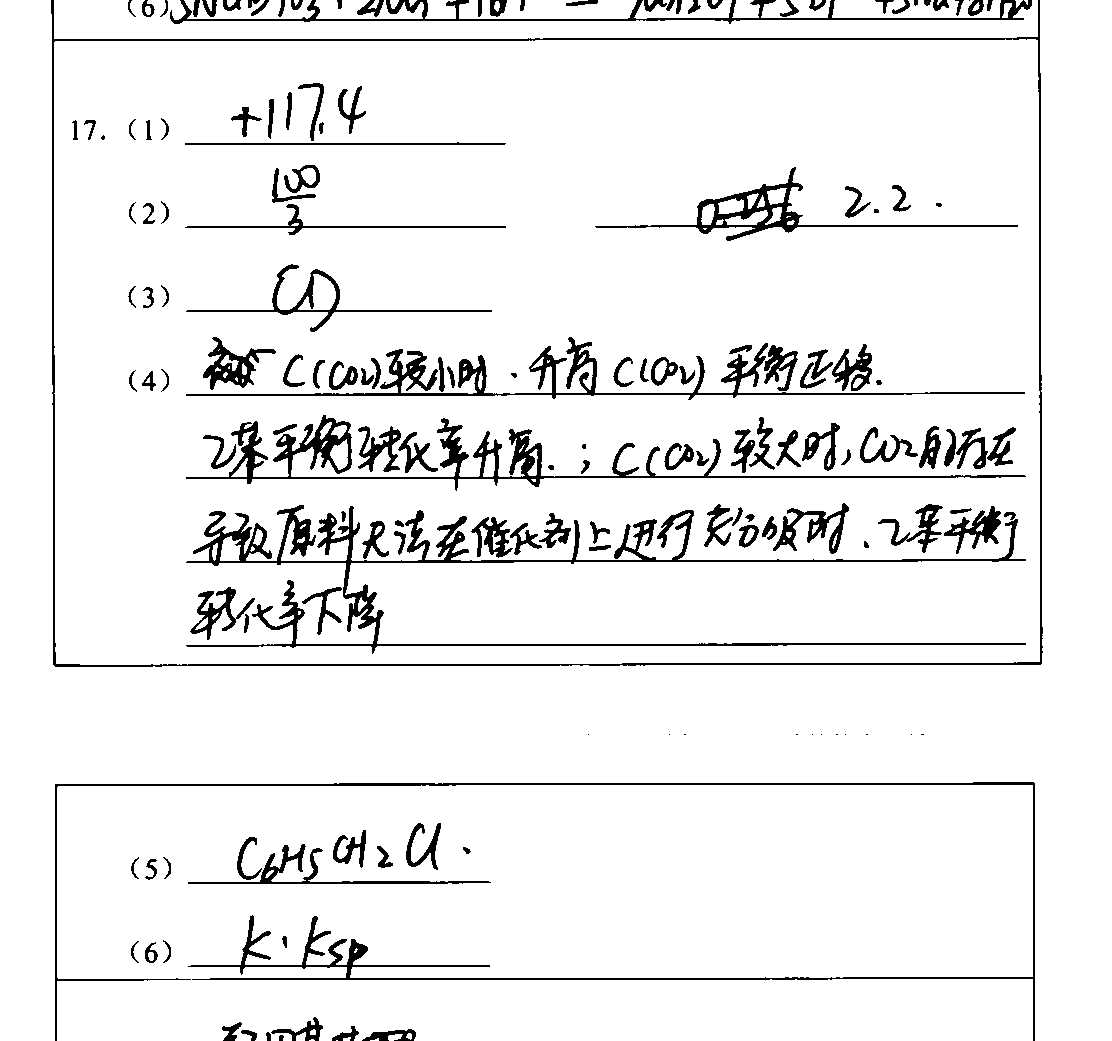 (6)
17.（1） +117.4
（2） 100/3 2.2.
（3） CD
（4） C(CO2)较小时.升高C(CO2)平衡正移.
乙苯平衡转化率升高.；C(CO2)较大时,CO2的存在
导致原料无法在催化剂上进行充分吸附.乙苯平衡
转化率下降
（5） C6H5CH2Cl.
（6） K·Ksp